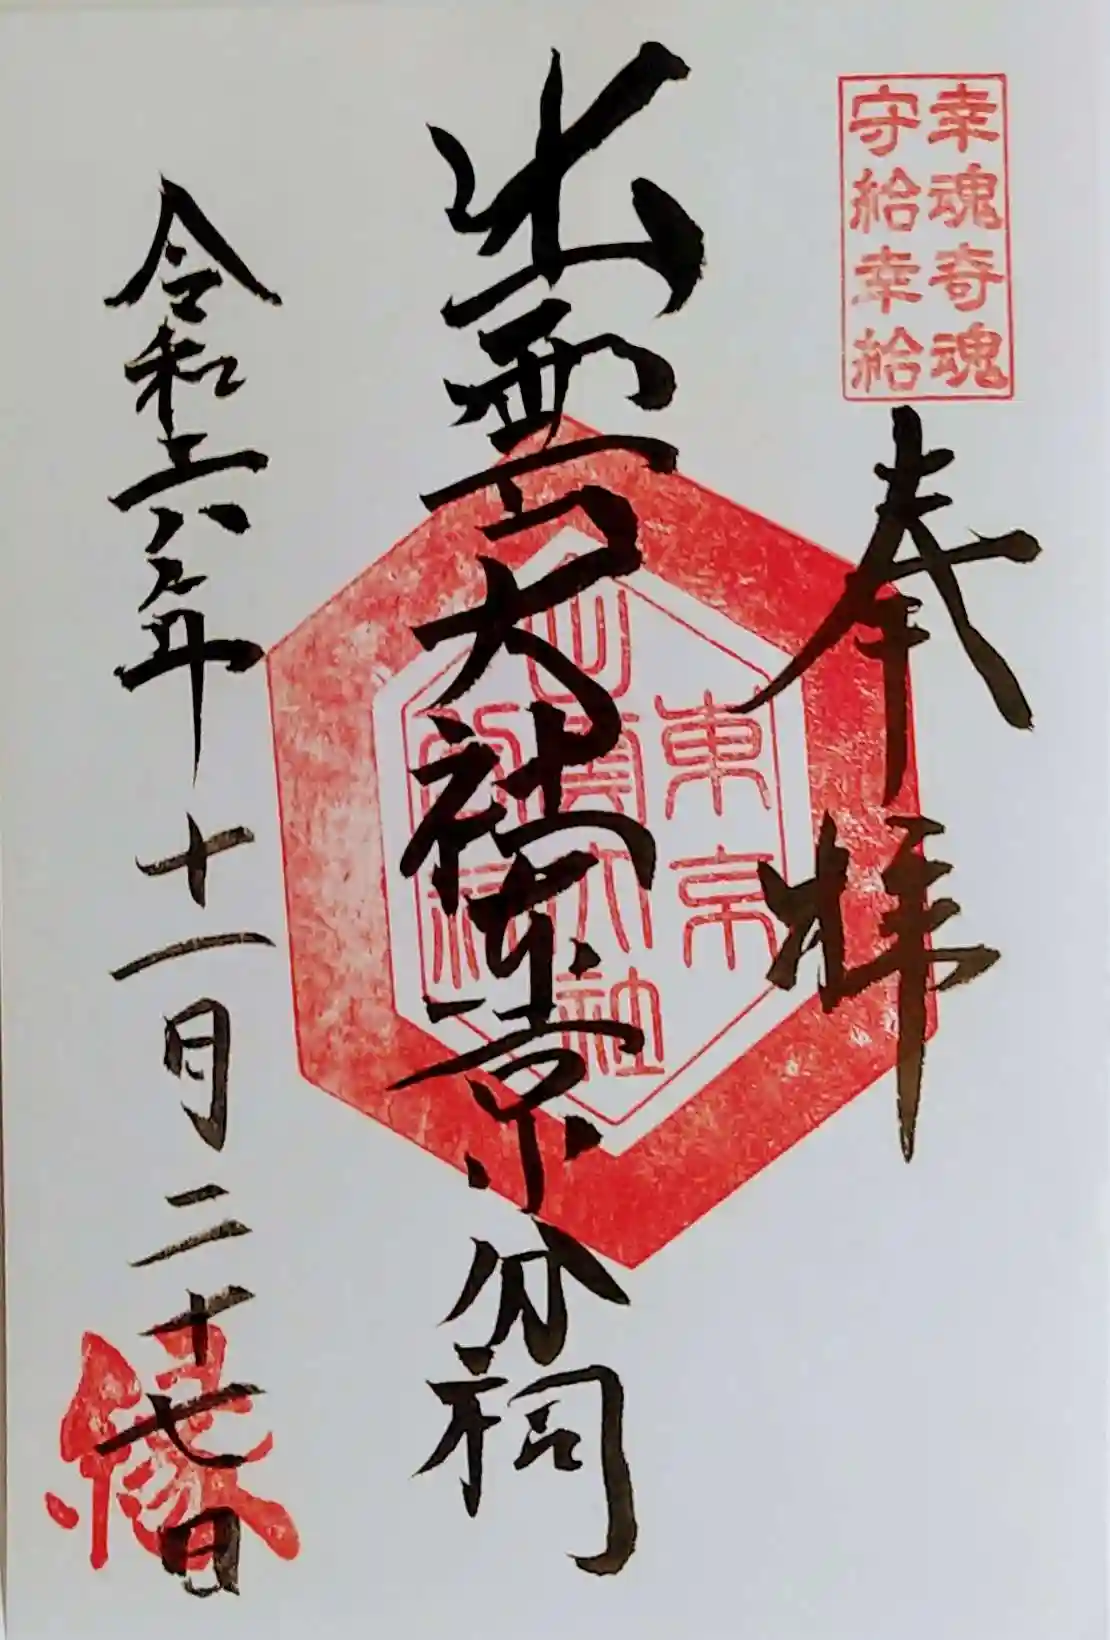 幸魂奇魂
守給幸給
奉拝
出雲大社東京分祠
東京
出雲大社
分祠
令和六年十一月二十七日
縁